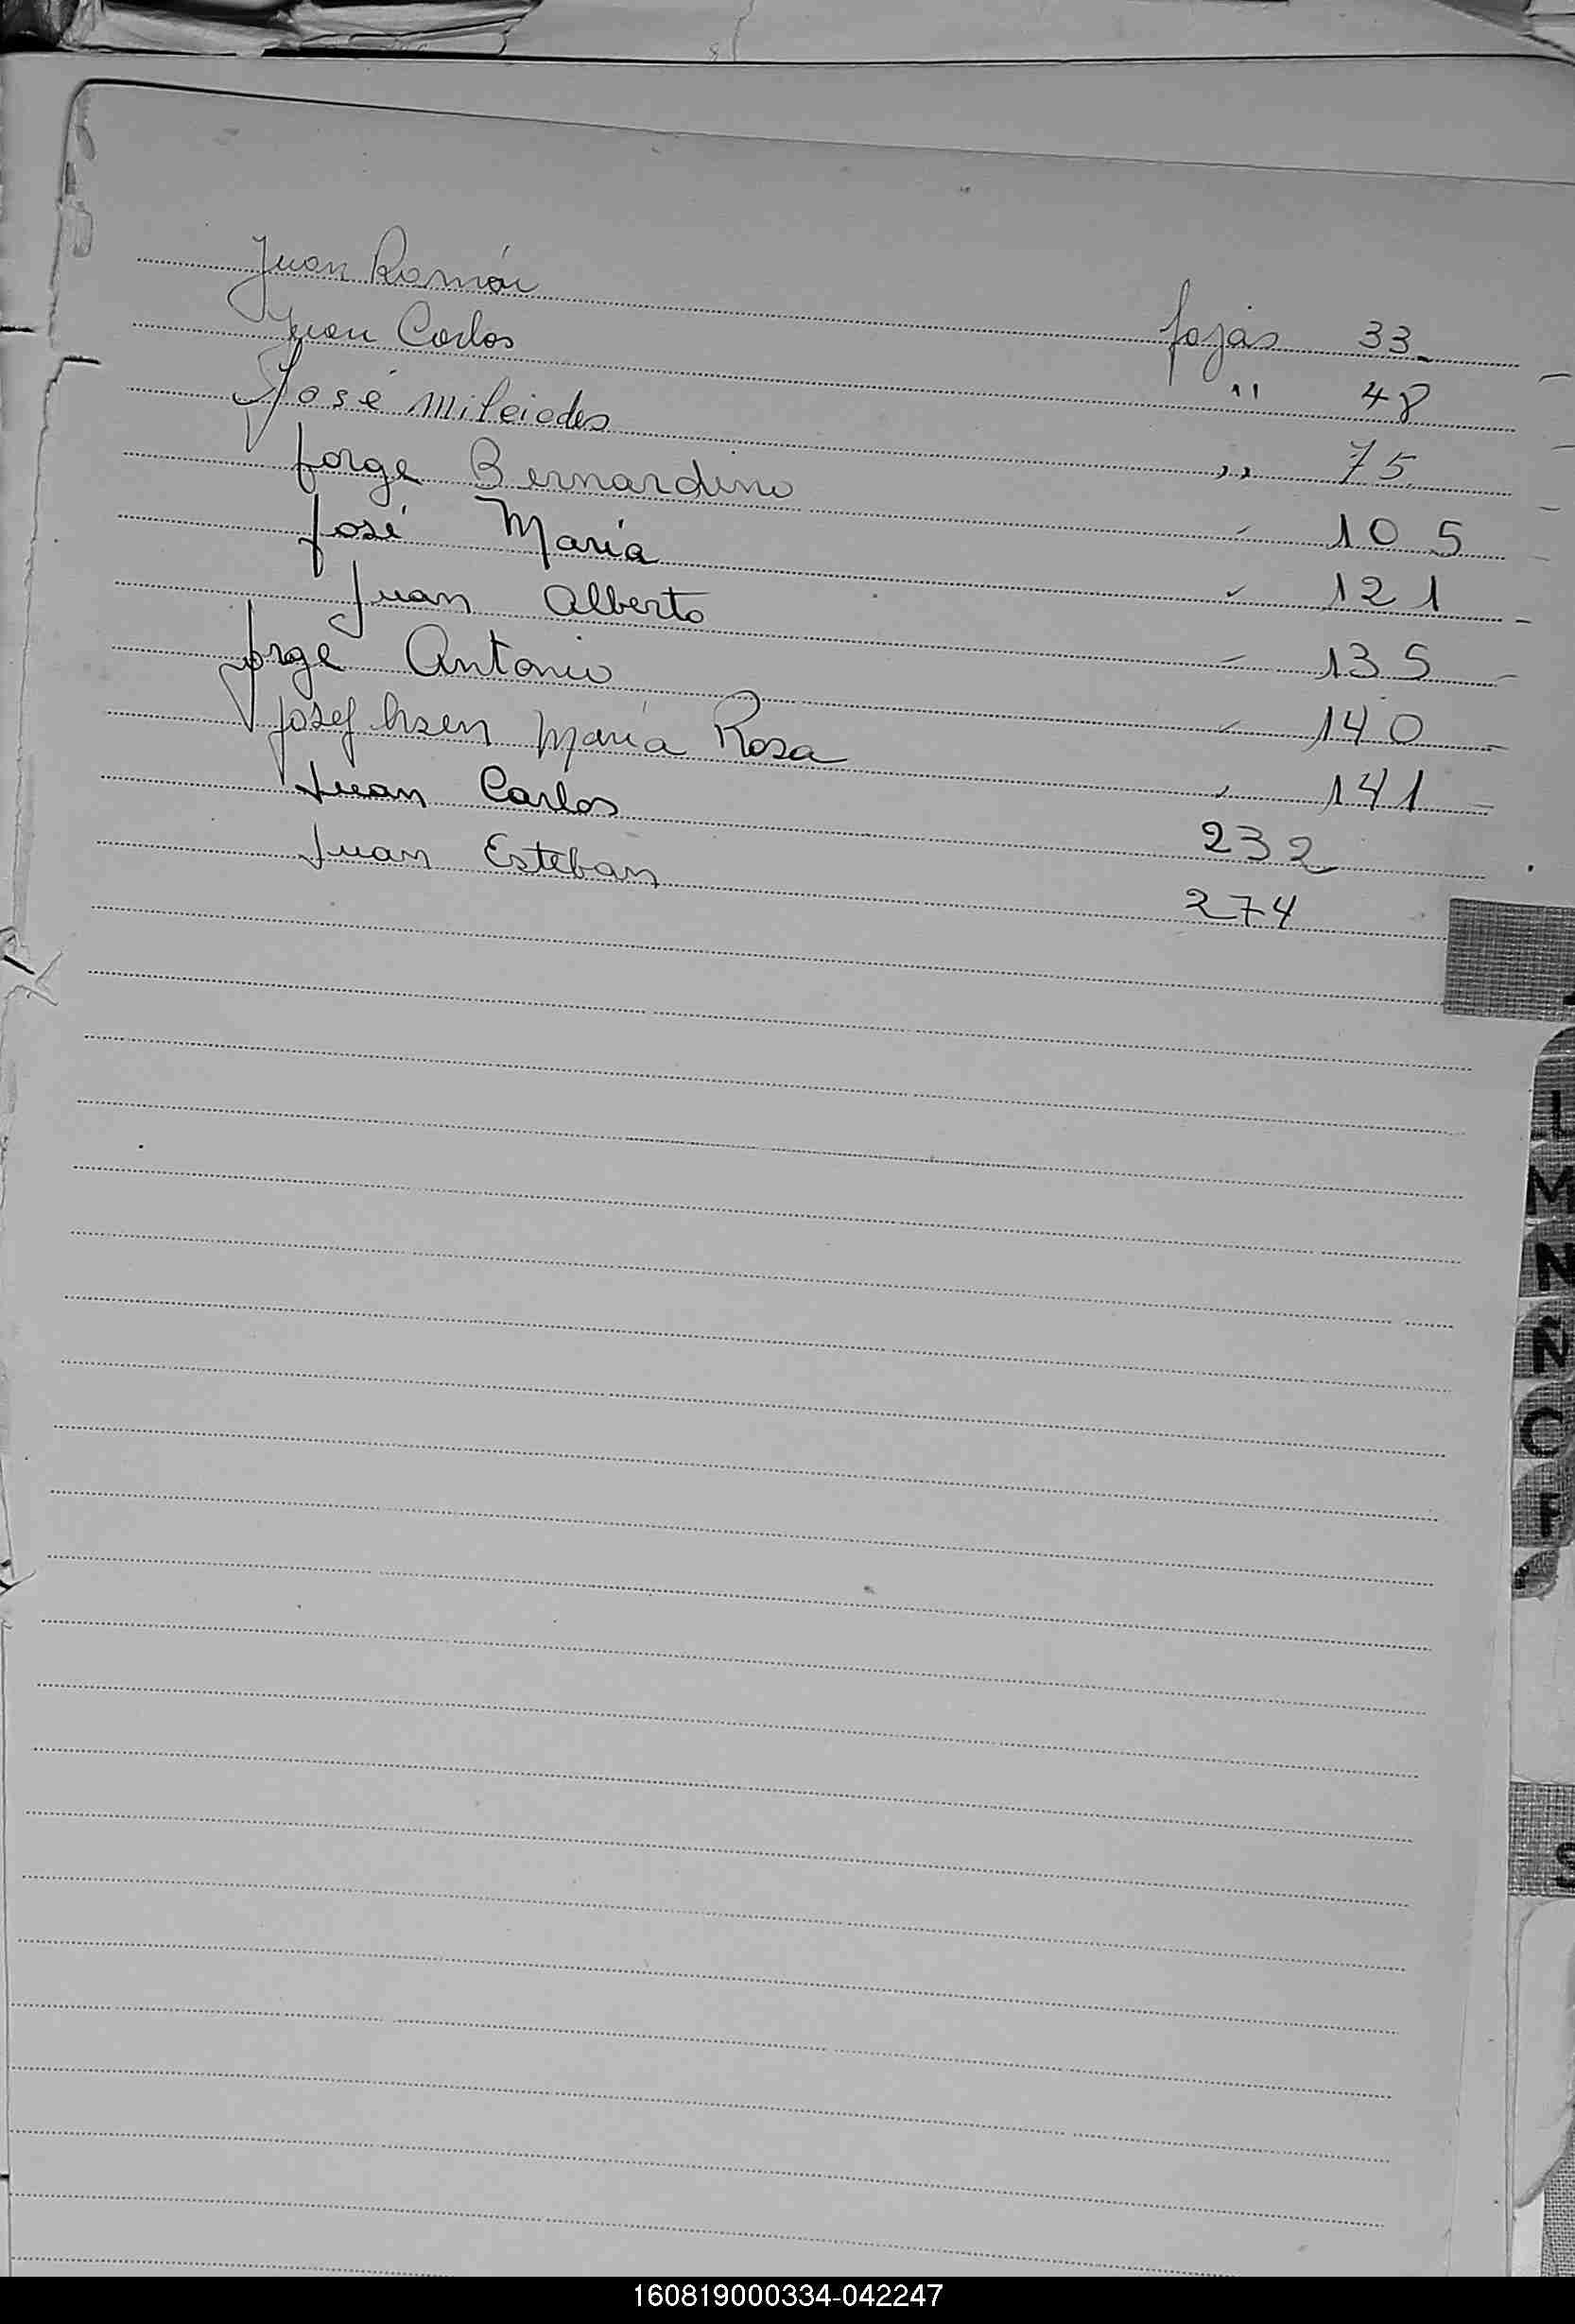 Juan Román fojas 33
Juan Carlos " 48
José Milciades " 75
Jorge Bernardino " 105
José María " 121
Juan Alberto " 135
Jorge Antonio " 140
María Rosa " 141
Juan Carlos 232
Juan Esteban 274
L
M
N
Ñ
O
P
S
160819000334-042247